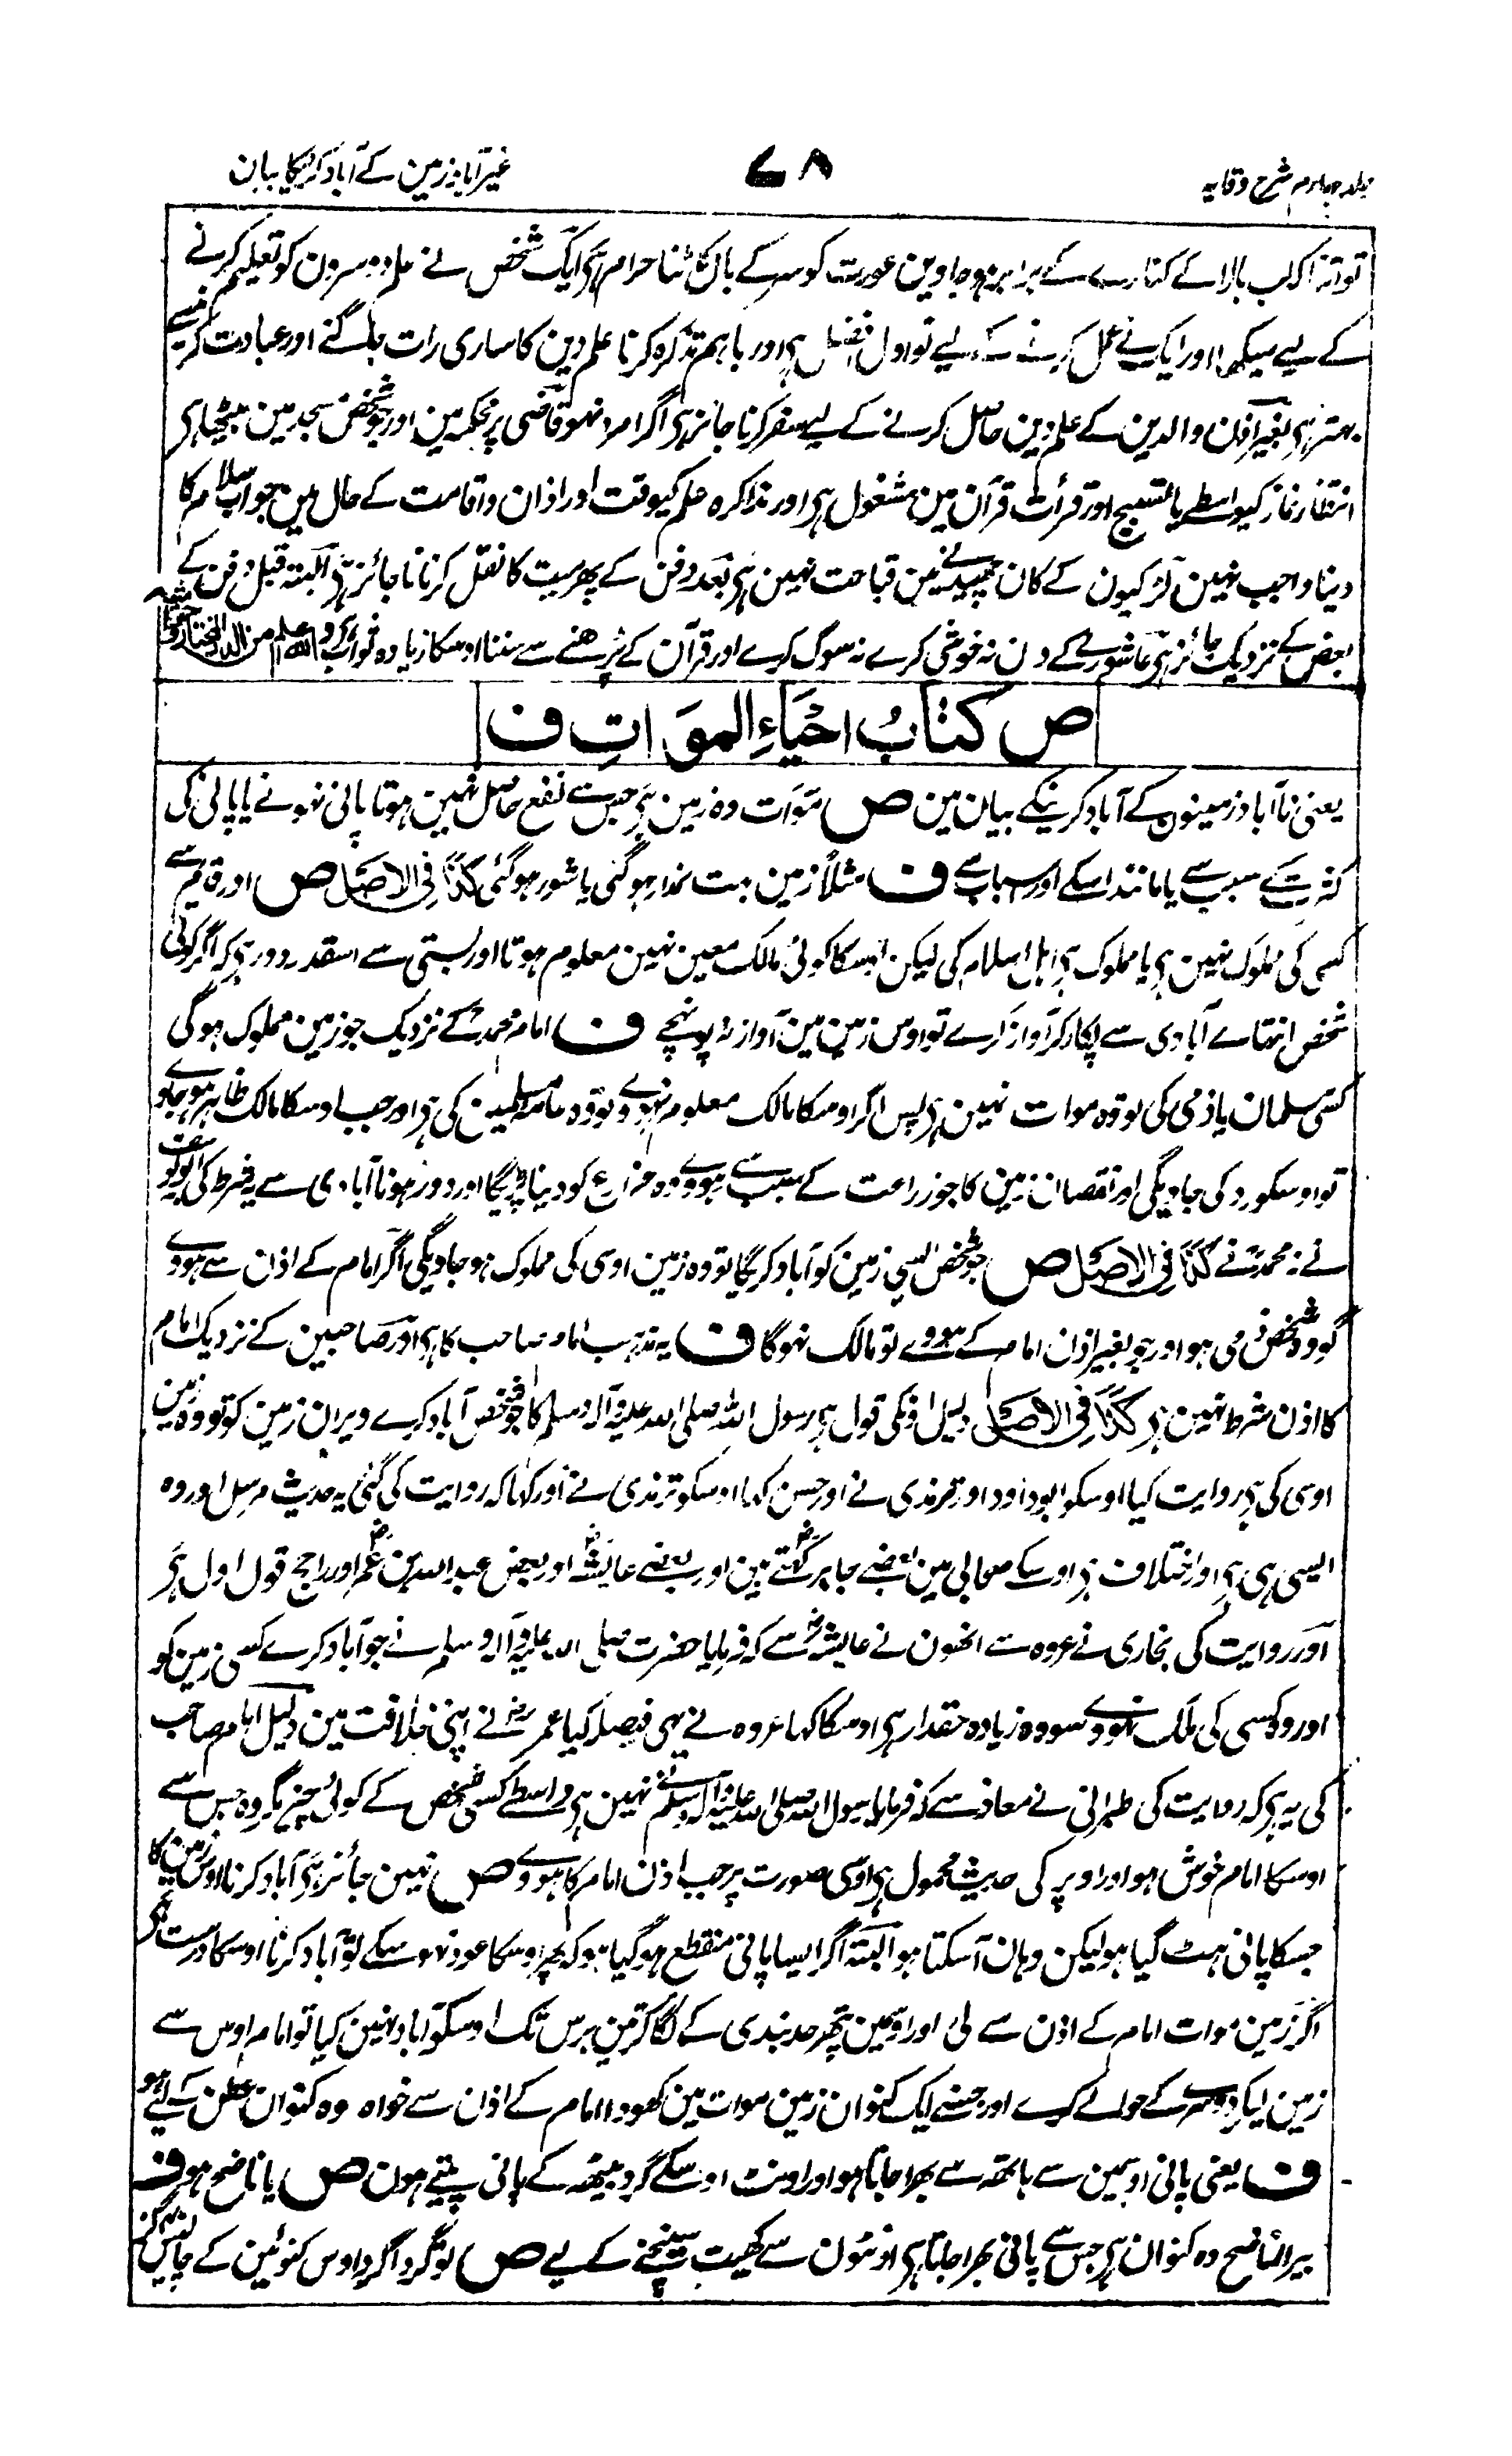 جلد چہارم شرح وقایہ
۷۸
غیر آباد زمین کے آباد کرنیکا بیان
تو اتنا کہ لب بالا کے کنارے کے برابر ہو جاوین عورت کو سر کے بال کاٹنا حرام ہی ایک شخص نے علم دوسرون کو تعلیم کرنے
کے لیے سیکھا اور ایک نے عمل کرنے کے لیے تو اول افضل ہی اور باہم تذکرہ کرنا علم دین کا ساری رات جاگنے اور عبادت کرنیسے
بہتر ہی بغیر اذن والدین کے علم دین حاصل کرنے کے لیے سفر کرنا جائز ہی اگر امرد نہو قاضی پر محکمہ مین اور جو شخص مسجد مین بیٹھا ہی
انتظار نماز کیواسطے یا تسبیح اور قرأت قرآن مین مشغول ہی اور تذاکرہ علم کیوقت اور اذان و اقامت کے حال مین جواب سلام کا
دینا واجب نہین لڑکیون کے کان چھیدنے مین قباحت نہین ہی بعد دفن کے پھر میت کا نقل کرنا ناجائز ہی البتہ قبل دفن کے
بعض کے نزدیک جائز ہی عاشورے کے دن نہ خوشی کرے نہ سوگ کرے اور قرآن کے پڑھنے سے سننا اوسکا زیادہ ثواب ہی واللہ اعلم من الدر المختار
ص کتاب احیاء الموات ف
یعنی نا آباد زمینون کے آباد کرنیکے بیان مین ص موات وہ زمین ہی جس سے نفع حاصل نہین ہوتا پانی نہونے یا پانی کی
کثرت کے سبب سے یا مانند اسکے اور اسباب سے ف مثلاً زمین بہت نمدار ہو گئی یا شور ہو گئی کذا فی الاصل ص اور قدیم سے
کسی کی مملوک نہین ہی یا مملوک ہی اہل اسلام کی لیکن اوسکا کوئی مالک معین نہین معلوم ہوتا اور بستی سے اسقدر دور ہی کہ اگر کوئی
شخص انتہاے آبادی سے پکار کر آواز کرے تو اوس زمین مین آواز نہ پہونچے ف امام محمد کے نزدیک جو زمین مملوک ہوگی
کسی مسلمان یا ذمی کی تو وہ موات نہین ہی پس اگر اوسکا مالک معلوم نہووے تو وہ عامہ مسلمین کی ہی اور جب اوسکا مالک ظاہر ہو جاوے
تو اوسکو رد کی جاویگی اور نقصان زمین کا جو زراعت کے سبب سے ہووے وہ مزارع کو دینا پڑیگا اور دور ہونا آبادی سے یہ شرط کی ابو یوسف
نے نہ محمد نے کذا فی الاصل ص جو شخص ایسی زمین کو آباد کریگا تو وہ زمین اوسی کی مملوک ہو جاویگی اگر امام کے اذن سے ہووے
گو وہ شخص ذمی ہو اور جو بغیر اذن امام کے ہووے تو مالک نہوگا ف یہ مذہب امام صاحب کا ہی اور صاحبین کے نزدیک امام
کا اذن شرط نہین ہی کذا فی الاصل دلیل اونکی قول ہی رسول اللہ صلی اللہ علیہ وآلہ وسلم کا جو شخص آباد کرے ویران زمین کو تو وہ زمین
اوسی کی ہی روایت کیا اوسکو ابو داود اور ترمذی نے اور حسن کہا اوسکو ترمذی نے اور کہا کہ روایت کی گئی یہ حدیث مرسل اور وہ
ایسی ہی ہی اور اختلاف ہی اوسکے صحابی مین بعضے جابر کہتے ہین اور بعضے عایشہ اور بعض عبد اللہ بن عمر اور راجح قول اول ہی
اور روایت کی بخاری نے عروہ سے انھون نے عایشہ سے کہ فرمایا حضرت صلی اللہ علیہ وآلہ وسلم نے جو آباد کرے کسی زمین کو
اور وہ کسی کی ملک نہووے سو وہ زیادہ حقدار ہی اوسکا کہا عروہ نے یہی فیصلہ کیا عمر نے اپنی خلافت مین دلیل امام صاحب
کی یہ ہی کہ روایت کی طبرانی نے معاذ سے کہ فرمایا رسول اللہ صلی اللہ علیہ وآلہ وسلم نے نہین ہی واسطے کسی شخص کے کوئی چیز مگر وہ جس سے
اوسکا امام خوش ہو اور اوپر کی حدیث محمول ہی اوسی صورت پر جب اذن امام کا ہووے ص نہین جائز ہی آباد کرنا اوس زمین کا
جسکا پانی ہٹ گیا ہو لیکن وہان آسکتا ہو البتہ اگر ایسا پانی منقطع ہو گیا ہو کہ پھر اوسکا عود نہو سکے تو آباد کرنا اوسکا درست ہی
اگر زمین موات امام کے اذن سے لی اور اوسمین پتھر حد بندی کے لگا کر تین برس تک اوسکو آباد نہین کیا تو امام اوس سے
زمین لیکر دوسرے کے حوالے کرے اور جسنے ایک کنوان زمین موات مین کھودا امام کے اذن سے خواہ وہ کنوان عطن کے لیے ہو
ف یعنی پانی اوسمین سے ہاتھ سے بھرا جاتا ہو اور اونٹ اوسکے گرد بیٹھ کے پانی پیتے ہون ص یا ناضح ہو ف
بیر الناضح وہ کنوان ہی جس سے پانی بھرا جاتا ہی اونٹون سے کھیت سینچنے کے لیے ص تو گرد اگرد اوس کنوئین کے چالیس گز